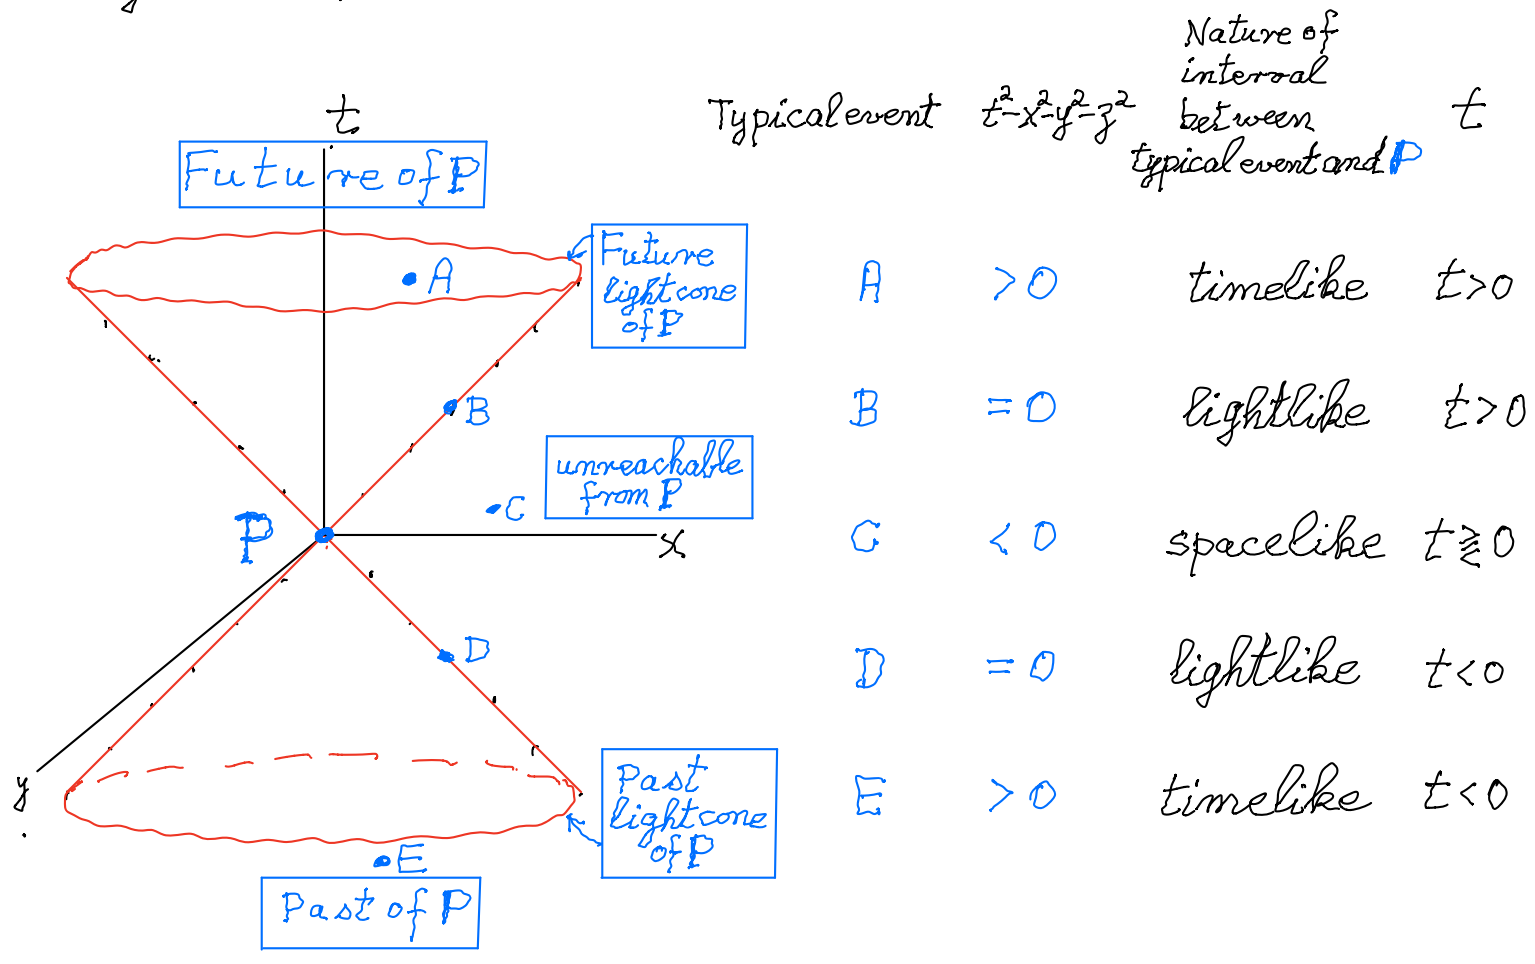 t
Future of P
A
Future
lightcone
of P
B
unreachable
from P
C
P
x
D
y
Past
lightcone
of P
E
Past of P
Typical event t²-x²-y²-z² Nature of
interval
between
typical event and P t
A >0 timelike t>0
B =0 lightlike t>0
C <0 spacelike t⪌0
D =0 lightlike t<0
E >0 timelike t<0